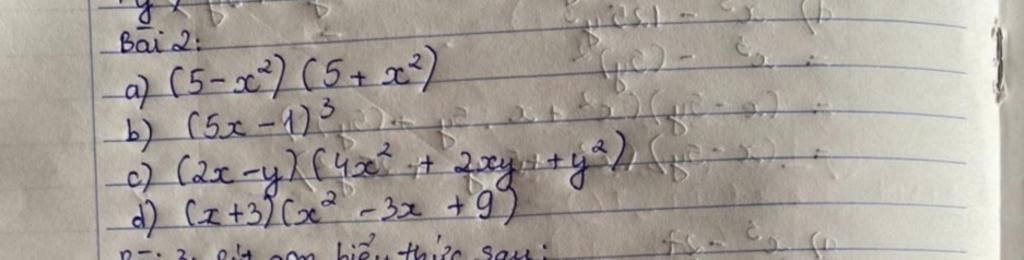 Bài 2:
a) (5 - x²) (5 + x²)
b) (5x - 1)³
c) (2x - y) (4x² + 2xy + y²)
d) (x + 3) (x² - 3x + 9)
biểu thức sau: